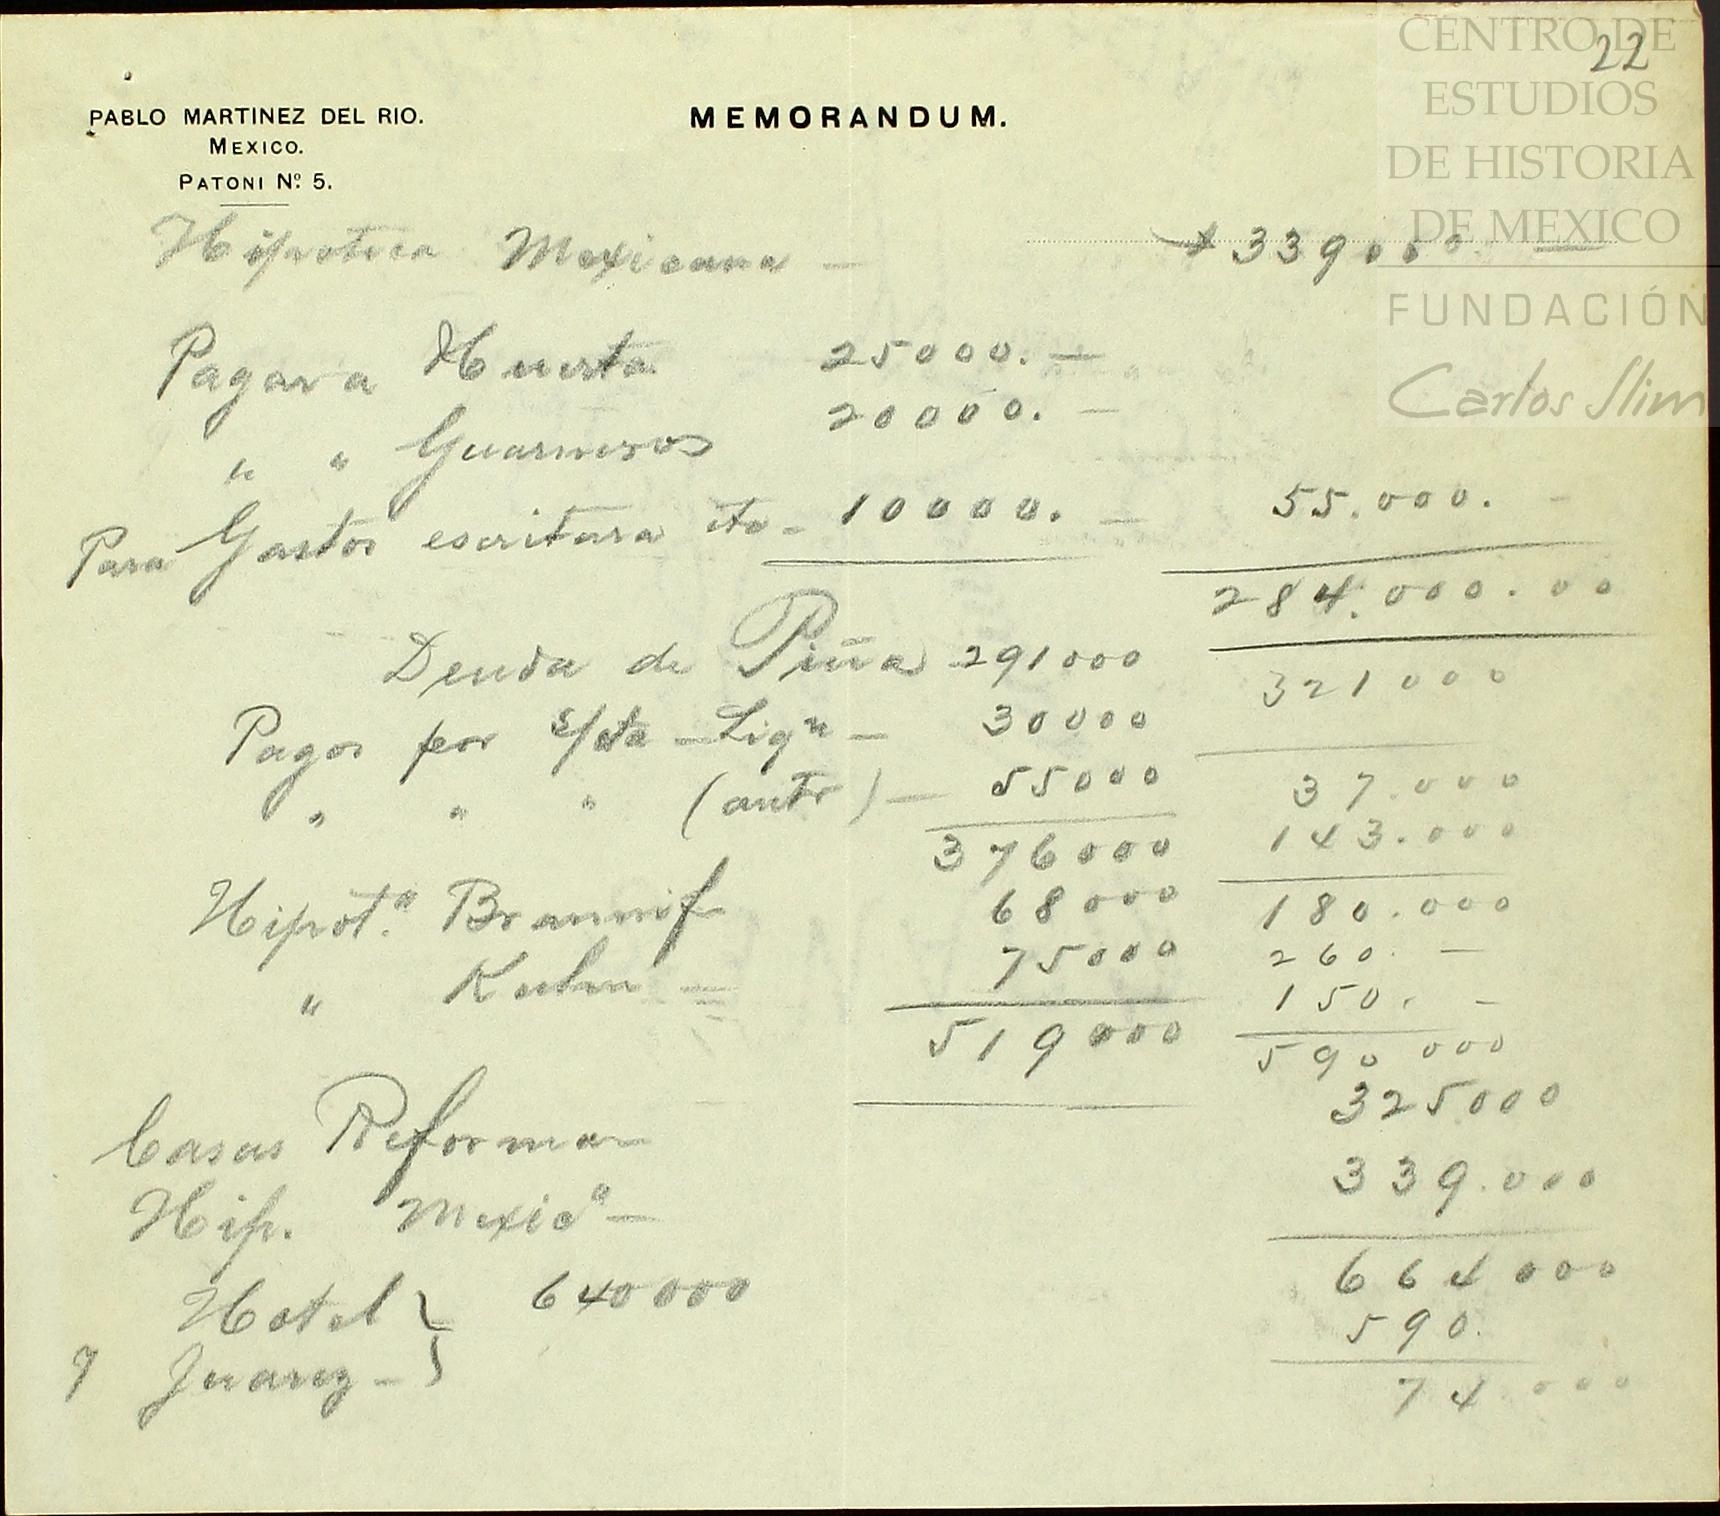 22
CENTRO DE
ESTUDIOS
DE HISTORIA
DE MEXICO
FUNDACIÓN
Carlos Slim
PABLO MARTINEZ DEL RIO.
MEXICO.
PATONI Nº 5.
MEMORANDUM.
Hipoteca Mexicana — $ 339000. —
Pagara Huerta 25000. —
" " Guarneros 20000. —
Para Gastos escritura etc - 10000. — 55.000. -
284.000.00
Deuda de Piña 291000 321000
Pagos por s/cta - Liqn - 30000
" " " (antr) — 55000 37.000
376000 143.000
Hipot.a Brannif 68000 180.000
" Kuhn — 75000 260. —
150. -
519000 590 000
325000
Casas Reforma
339.000
Hip. Mexica —
664000
Hotel } 640000
590.
y Juarez - }
74.000